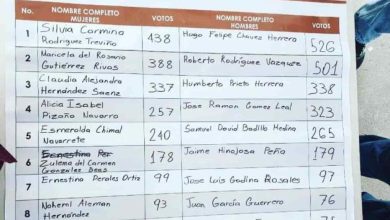 No.
NOMBRE COMPLETO
MUJERES
VOTOS
NOMBRE COMPLETO
HOMBRES
VOTOS
1
Silvia Carmina
Rodriguez Treviño
438
Hugo Felipe Chavez Herrera
526
2
Maricela del Rosario
Gutiérrez Rivas
388
Roberto Rodríguez Vazquez
501
3
Claudia Alejandra
Hernández Saenz
337
Humberto Prieto Herrera
338
4
Alicia Isabel
Pizaño Navarro
257
Jose Ramon Gomez Leal
323
5
Esmerolda Chimal
Navarrete
240
Samuel David Badillo Medina
265
6
Ernestina Per
Zulema del Carmen
Gonzalez Beas
178
Jaime Hinojosa Peña
179
7
Ernestina Perales Ortiz
99
Jose Luis Godina Rosales
97
8
Nohemi Aleman
Hernández
93
Juan García Guerrero
76